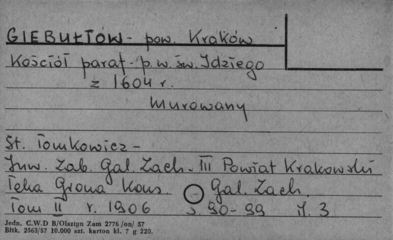 GIEBUŁTÓW - pow. Kraków
Kościół paraf. p.w. św. Idziego
z 1604 r.
murowany
St. Tomkowicz -
Inw. Zab. Gal. Zach. III Powiat Krakowski
Teka Grona Kons. Gal. Zach.
Tom II r. 1906 s. 90-99 il. 3
Jedn. C.W.D B/Olsztyn Zam 2776 /on/ 57
Bltk. 2563/57 10.000 szt. karton kl. 7 g 220.